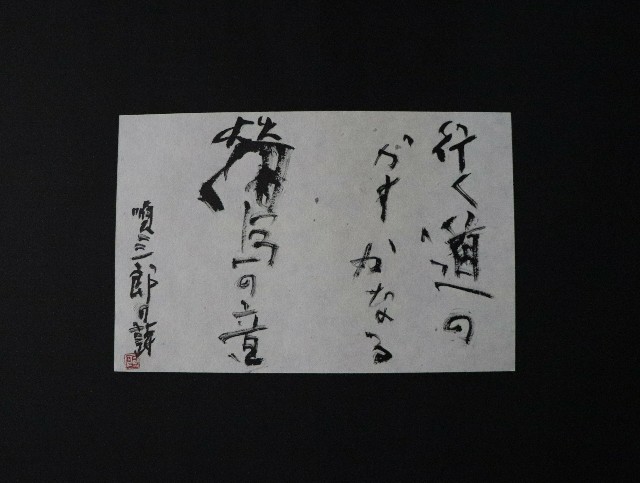 行く道の
かすかなる
鶯の音
順三郎の詩